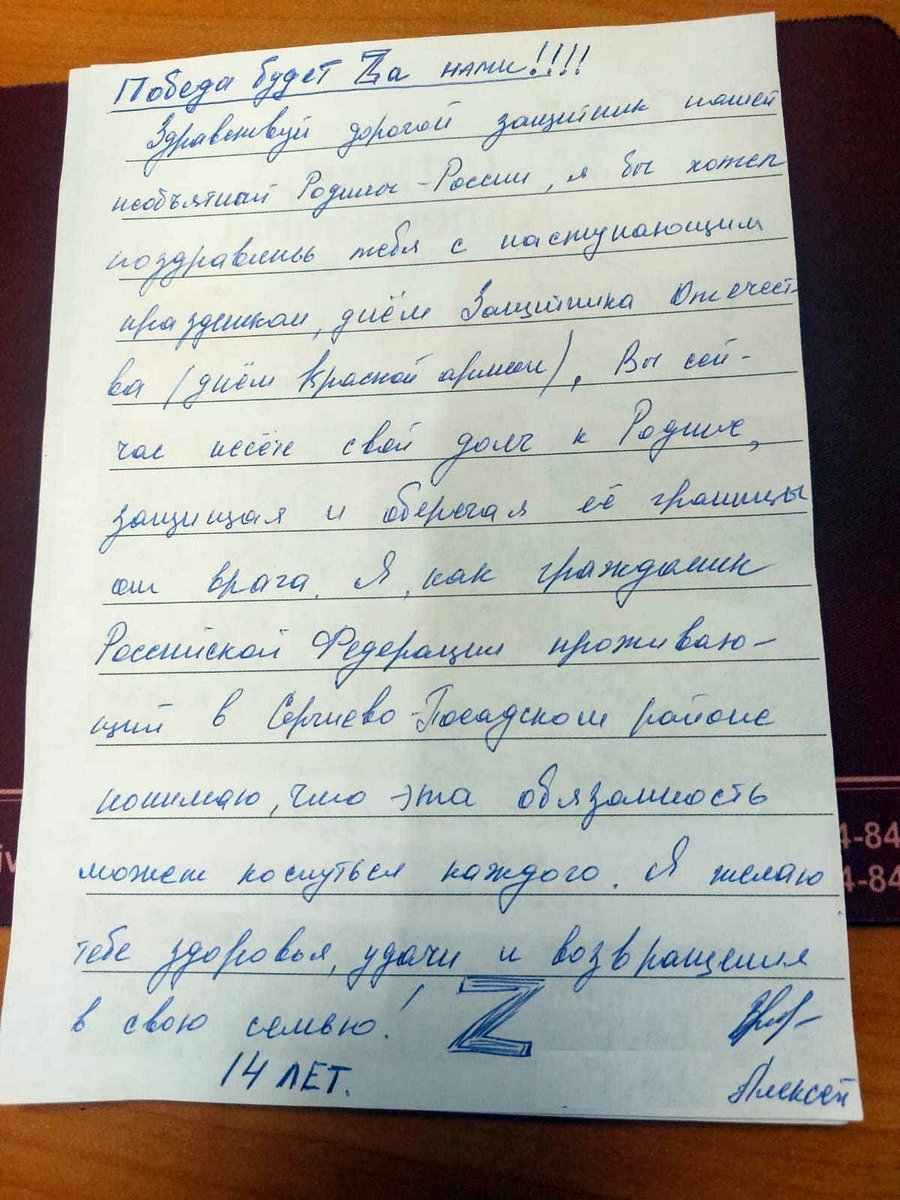 Победа будет Zа нами!!!!
Здравствуй дорогой защитник нашей
необъятной Родины-России, я бы хотел
поздравить тебя с наступающим
праздником, днём Защитника Отечест-
ва (днём Красной армии). Вы сей-
час несёте свой долг к Родине,
защищая и оберегая её границы
от врага. Я, как гражданин
Российской Федерации проживаю-
щий в Сергиево-Посадском районе
понимаю, что эта обязанность
может коснуться каждого. Я желаю
тебе здоровья, удачи и возвращения
в свою семью! Z
14 ЛЕТ.
Алексей
4-84
4-84